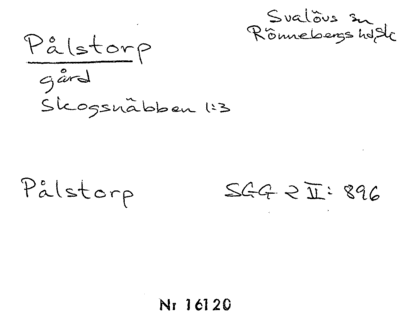 Pålstorp
gård
Skogsnäbben 1:3
Svalövs sn
Rönnebergs hd, Sk
Pålstorp SGG 2 II: 896
Nr 16120